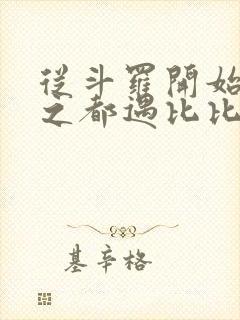 從斗羅開始
之都遇比比
基辛格